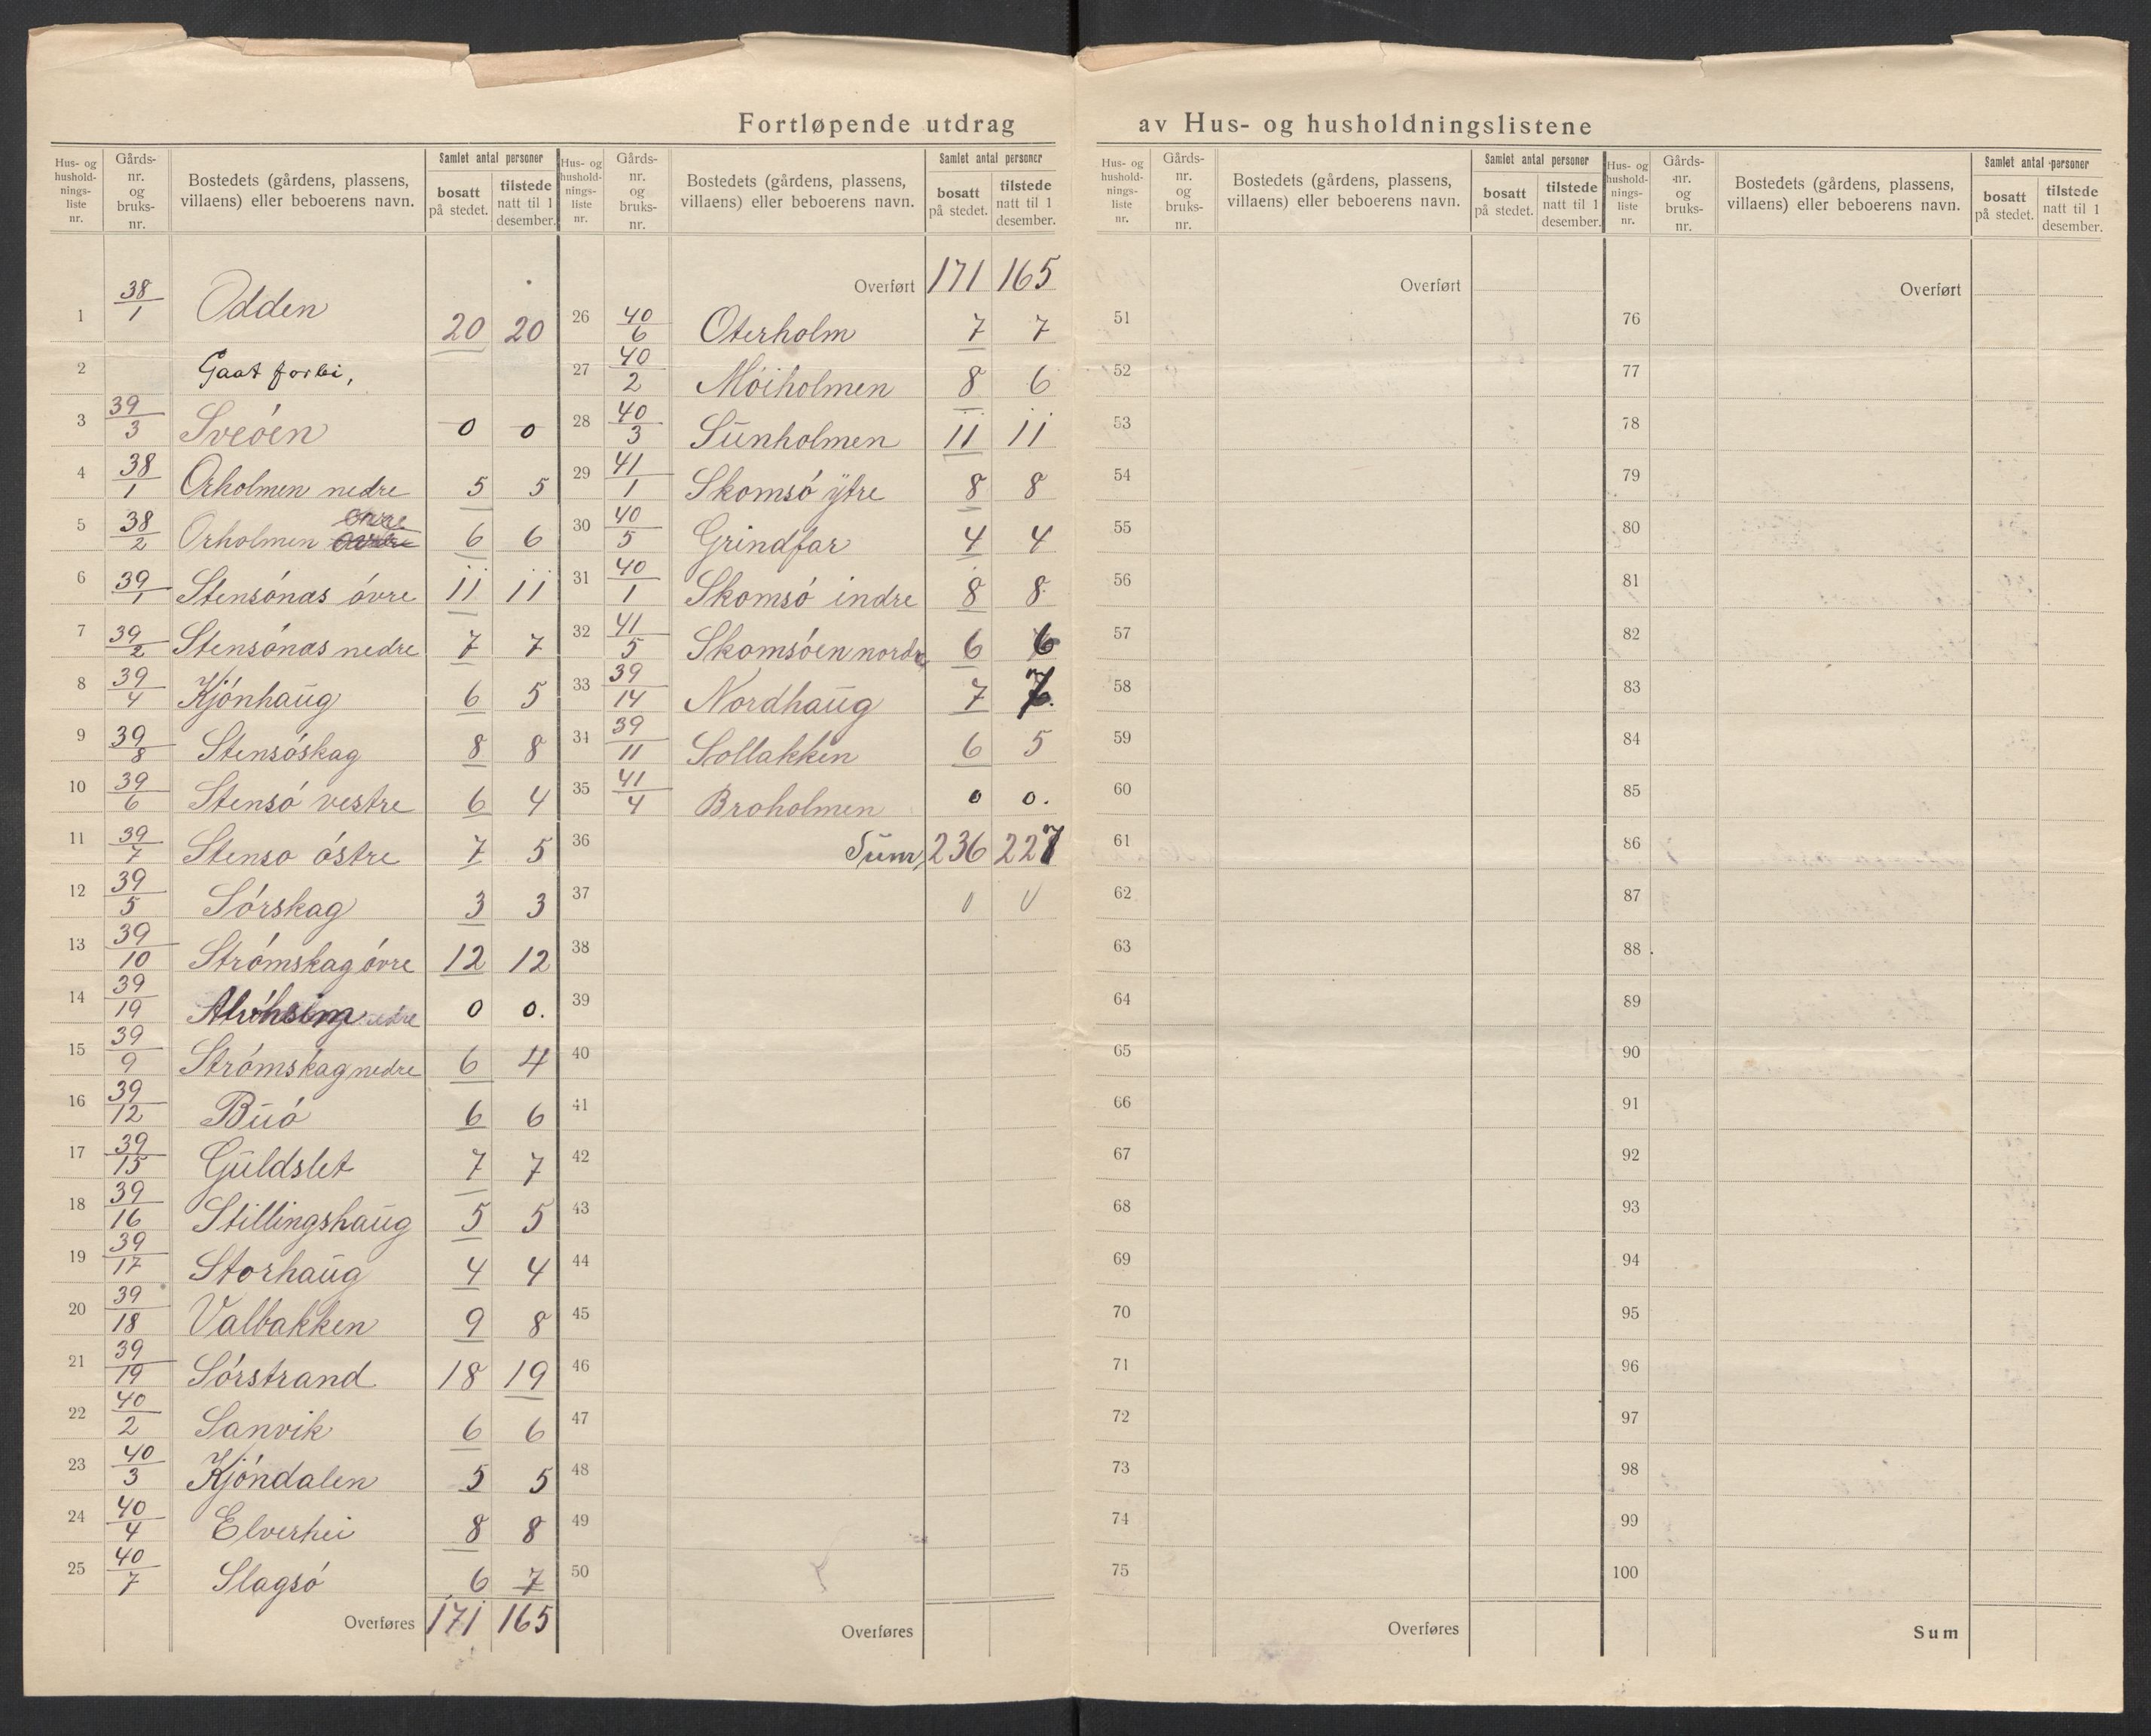 Fortløpende utdrag av Hus- og husholdningslistene
Hus- og hushold-nings-liste nr. | Gårds-nr. og bruks-nr. | Bostedets (gårdens, plassens, villaens) eller beboerens navn. | Samlet antal personer | bosatt på stedet. | tilstede natt til 1 desember.
1 38/1 Odden 20 20
2 Gaat forbi,
3 39/3 Sveóen 0 0
4 38/1 Orholmen nedre 5 5
5 38/2 Orholmen óvre 6 6
6 39/1 Stensónas óvre 11 11
7 39/2 Stensónas nedre 7 7
8 39/4 Kjónhaūg 6 5
9 39/8 Stensóskag 8 8
10 39/6 Stensó vestre 6 4
11 39/7 Stenso óstre 7 5
12 39/5 Sórskag 3 3
13 39/10 Strómskag óvre 12 12
14 39/19 Alvheim 0 0.
15 39/9 Strómskag nedre 6 4
16 39/12 Būó 6 6
17 39/15 Gūldslet 7 7
18 39/16 Stillingshaūg 5 5
19 39/17 Storhaūg 4 4
20 39/18 Valbakken 9 8
21 39/19 Sórstrand 18 19
22 40/2 Sanvik 6 6
23 40/3 Kjóndalen 5 5
24 40/4 Elverhei 8 8
25 40/7 Slagsó 6 7
Overføres 171 165
Hus- og hushold-nings-liste nr. | Gårds-nr. og bruks-nr. | Bostedets (gårdens, plassens, villaens) eller beboerens navn. | Samlet antal personer | bosatt på stedet. | tilstede natt til 1 desember.
Overført 171 165
26 40/6 Oterholm 7 7
27 40/2 Móiholmen 8 6
28 40/3 Sūnholmen 11 11
29 41/1 Skomsó ytre 8 8
30 40/5 Grindfar 4 4
31 40/1 Skomsó indre 8 8
32 41/5 Skomsóen nordre 6 6
33 39/14 Nordhaūg 7 7.
34 39/11 Sollakken 6 5
35 41/4 Broholmen 0 0.
36 Sūm, 236 227
37
38
39
40
41
42
43
44
45
46
47
48
49
50
Overføres
Hus- og hushold-nings-liste nr. | Gårds-nr. og bruks-nr. | Bostedets (gårdens, plassens, villaens) eller beboerens navn. | Samlet antal personer | bosatt på stedet. | tilstede natt til 1 desember.
Overført
51
52
53
54
55
56
57
58
59
60
61
62
63
64
65
66
67
68
69
70
71
72
73
74
75
Overføres
Hus- og hushold-nings-liste nr. | Gårds-nr. og bruks-nr. | Bostedets (gårdens, plassens, villaens) eller beboerens navn. | Samlet antal personer | bosatt på stedet. | tilstede natt til 1 desember.
Overført
76
77
78
79
80
81
82
83
84
85
86
87
88
89
90
91
92
93
94
95
96
97
98
99
100
Sum